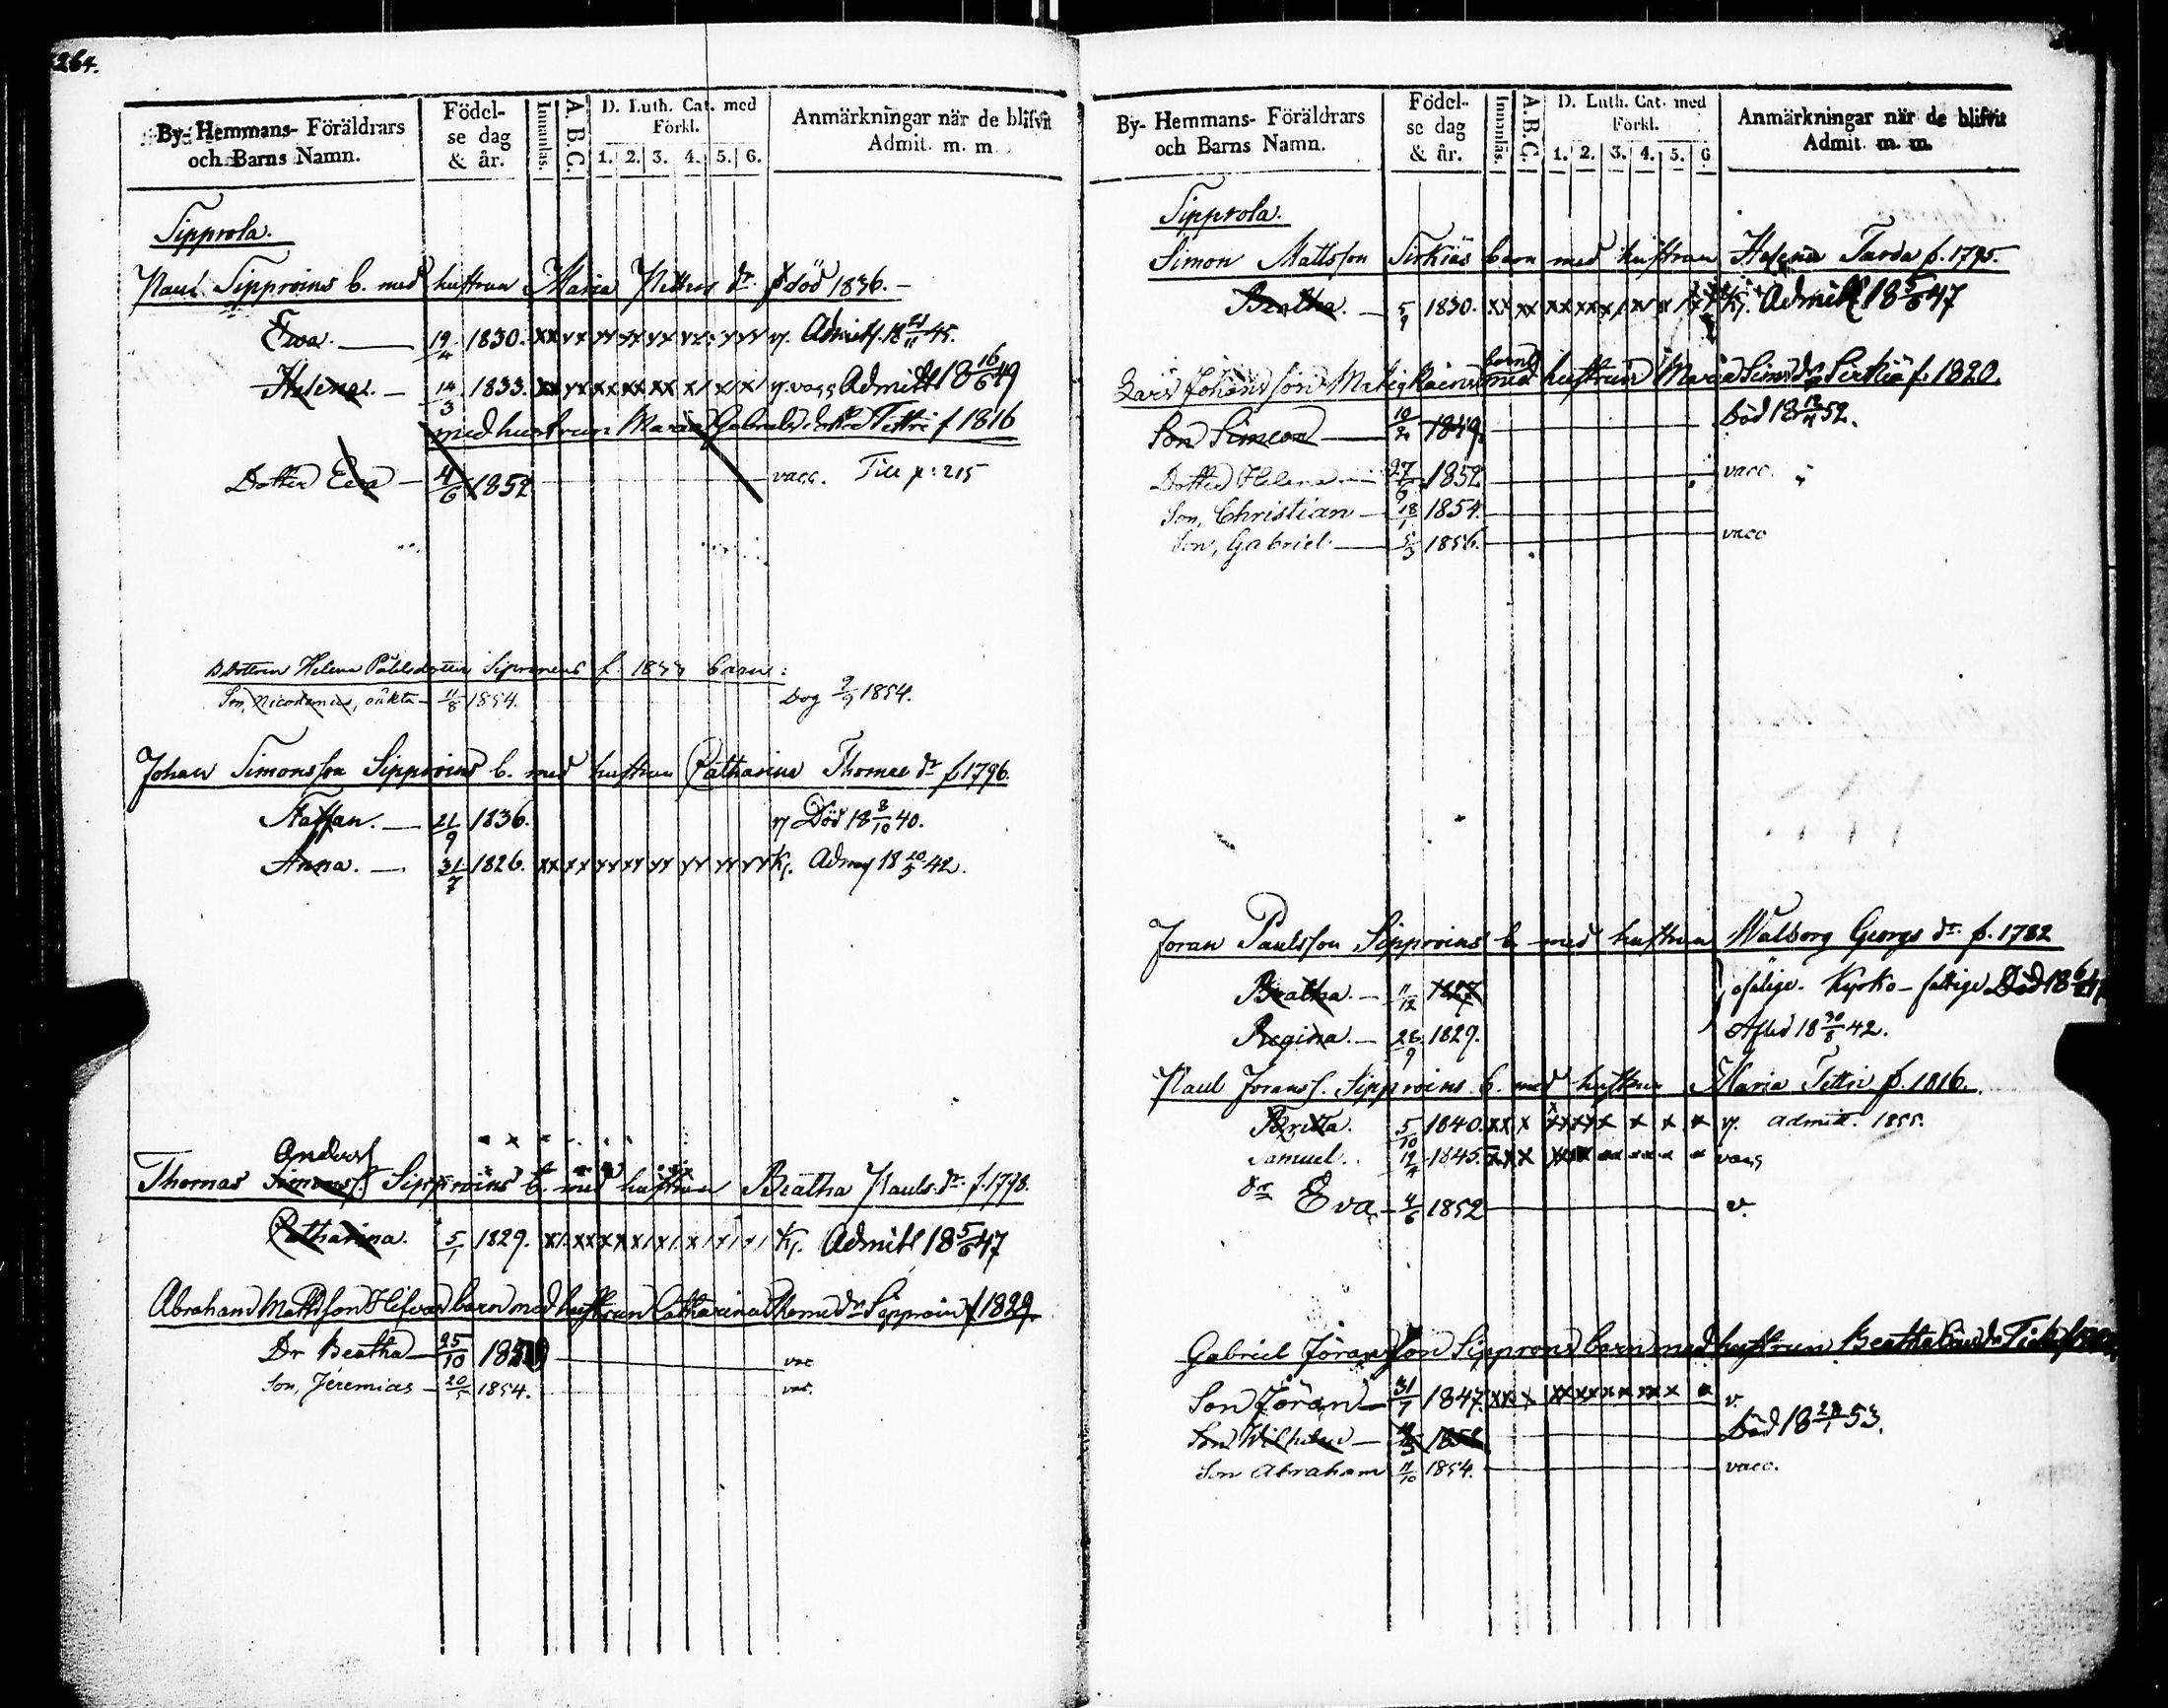 264.
By- Hemmans- Föräldrars och Barns Namn.
Födel-se dag & år.
Innanläs.
A. B. C.
D. Luth. Cat. med Förkl.
1. 2. 3. 4. 5. 6.
Anmärkningar när de blifvit Admit. m. m.
Sipprola.
Paul Sipproins b. med hustrun Maria Petters dr. död 1836.
Eva. 19/4 1830. xx xx xx xx xx xx xx xx Admitt. 18 21/11 45.
Helena. 14/3 1833. xx xx xx xx xx x x x vacc Admitt 18 16/6 49
med hustrun Maria Gabrielsdotter Tettri f 1816
Dotter Eva 4/6 1852 vacc. Till p: 215
Dottren Helena Pålsdotter Sipronens f. 1833 barn:
Son, Nicodemus, oäkta 11/8 1854. Dog 9/9 1854.
Johan Simonsson Sipproins b. med hustrun Catharina Thomæ dr f. 1796.
Staffan. 21/9 1836. Död 18 8/10 40.
Anna. 31/7 1826. xx xx xx xx xx xx xx xx Kj. Adm 18 20/5 42.
Thomas Anders Simonss. Sipproins b. med hustrun Beatha Pauls dr f. 1798.
Catharina. 5/1 1829. Kj. Admitt 18 5/6 47
Abraham Mattsson Hifva barn med hustrun Catharina Thome dr Sipproin f 1829.
Dr Beatha 25/10 vac
Son, Jeremias 20/5 1854. vac.
By- Hemmans- Föräldrars och Barns Namn.
Födel-se dag & år.
Innanläs.
A. B. C.
D. Luth. Cat. med Förkl.
1. 2. 3. 4. 5. 6
Anmärkningar när de blifvit Admit. m. m.
Sipprola.
Simon Mattsson Sirkiäs barn med hustrun Helena Tarda f. 1795.
Beatha. 5/9 1830. Kj. Admitt 18 5/6 47
Lars Johansson barn med hustrun Maria Sims dr Sirkiä f. 1820.
Son Simeon 10/2 1849. Död 18 52.
Dotter Helena 27/6 1852 vacc.
Son, Christian 18/1 1854.
Son, Gabriel 5/3 1856. vacc
Joran Paulsson Sipproins b. med hustrun Walborg Georgs dr. f. 1782
Beatha. 11/12 1827 Kyrko-fattige Död 18
Regina. 28/9 1829. Afled 18 30/8 42.
Paul Joranss. Sipproins b. med hustrun Maria Tettri f. 1816.
Britta. 5/10 1840. xx x xxxx x x x x admitt. 1855.
Samuel. 12/4 1845. vacc
Dr Eva 4/6 1852 v.
Gabriel Joransson Sipprons barn med hustrun Beatha
Son Jöran 31/7 1847 v.
Son Wilhelm Död 18 28/1 53.
Son Abraham 11/10 1854. vacc.